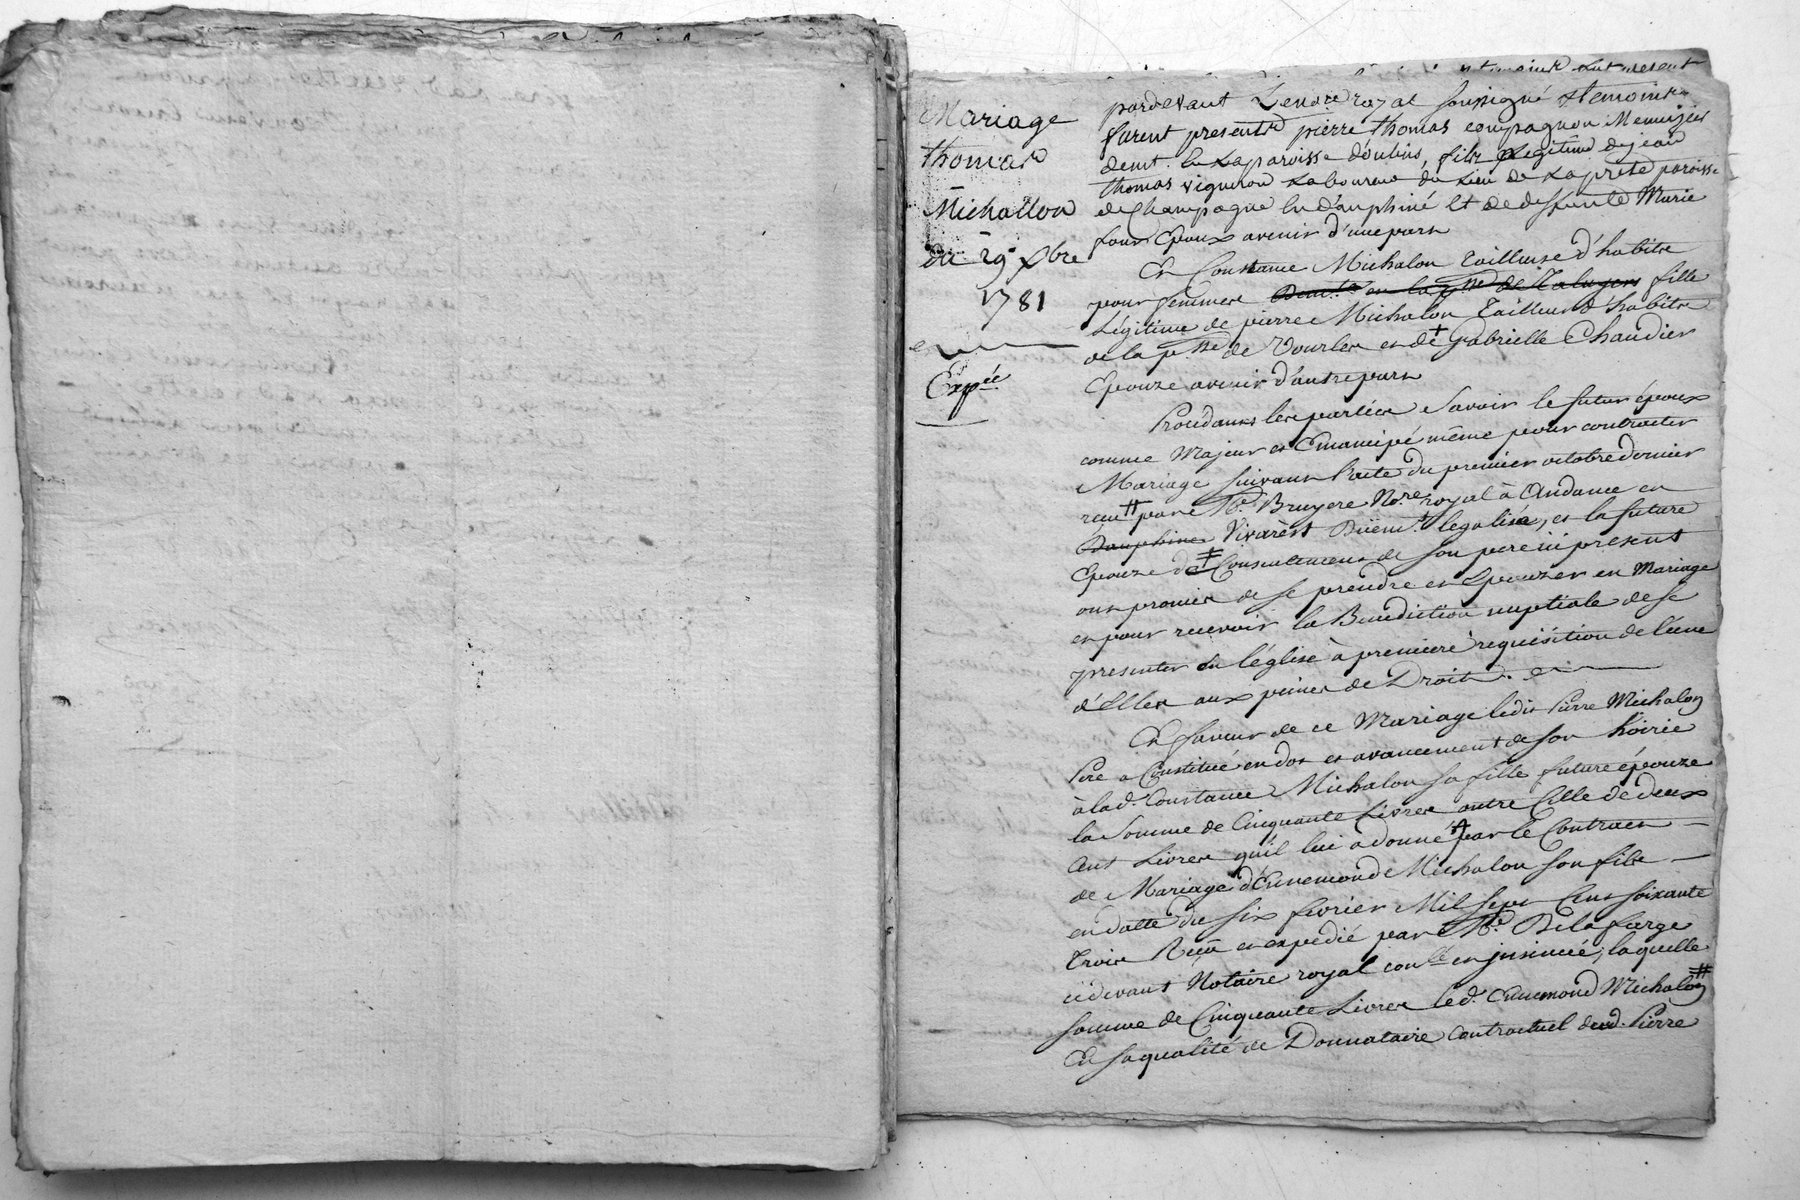 Mariage
thomas
Michallon
du 29 Xbre
1781
Expée
pardevant Lenore royal soussigné & temoins
furent presents pierre thomas compagnon Menuizier
demt. en La paroisse d'oulins, fils Legitime de jean
thomas vigneron Laboureur du Lieu de paroisse
de Champagne en dauphiné Et de deffunte Marie
four Epoux avenir d'une part
Et Constance Michalon tailleuse d'habits
pour femmes Demte. en la psse de Taluyers fille
Légitime de pierre Michalon Tailleur d'habits
de la psse de Vourles et de + Gabrielle Chaudier
Epouze avenir d'autre part
Procédants les parties Savoir le futur époux
comme Majeur et Emancipé même pour contracter
Mariage suivant l'acte du premier octobre dernier
reçu # par Me. Bruyere Nore royal à Andance en
Dauphiné Vivarèst Duëmt. legalisé, et la future
Epouze de ‡ Consentement de son pere ici present
ont promis de se prendre et Epouzer en Mariage
et pour recevoir la Benediction nuptiale de se
presenter en l'église à premiere requisition de l'une
d'Elles aux peines de Droit.
En faveur de ce Mariage ledit Pierre Michalon
Pere a Constitué en dot et avancement de son hoirie
à lad. Constance Michalon sa fille future épouze
la Somme de Cinquante Livres outre Celle de deux
Cent Livres qu'il lui a donné + par le Contract
de Mariage d'Ennemond Michalon son fils
en datte du six fevrier Mil sept Cent soixante
trois Reçu et expedié par Me. Delafarge
cidevant Notaire royal conllé et jnsinué, laquelle
somme de Cinquante Livres led. Ennemond Michalon #
En sa qualité de Donnataire Contractuel dud. Pierre